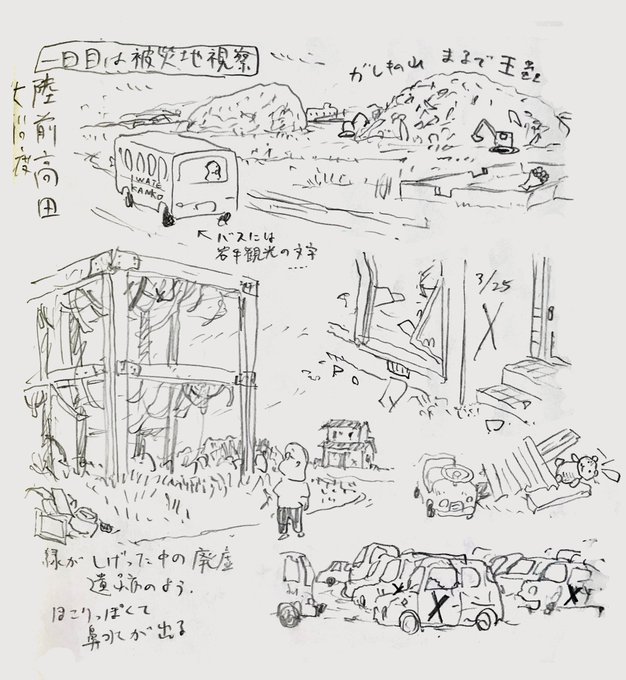 一日目は被災地視察
陸前高田
がれきの山 まるで王蟲
IWATE
KANKO
バスには
岩手観光の文字
3/25
X
X
X
緑がしげった中の廃虚
遺跡のよう.
ほこりっぽくて
鼻水が出る